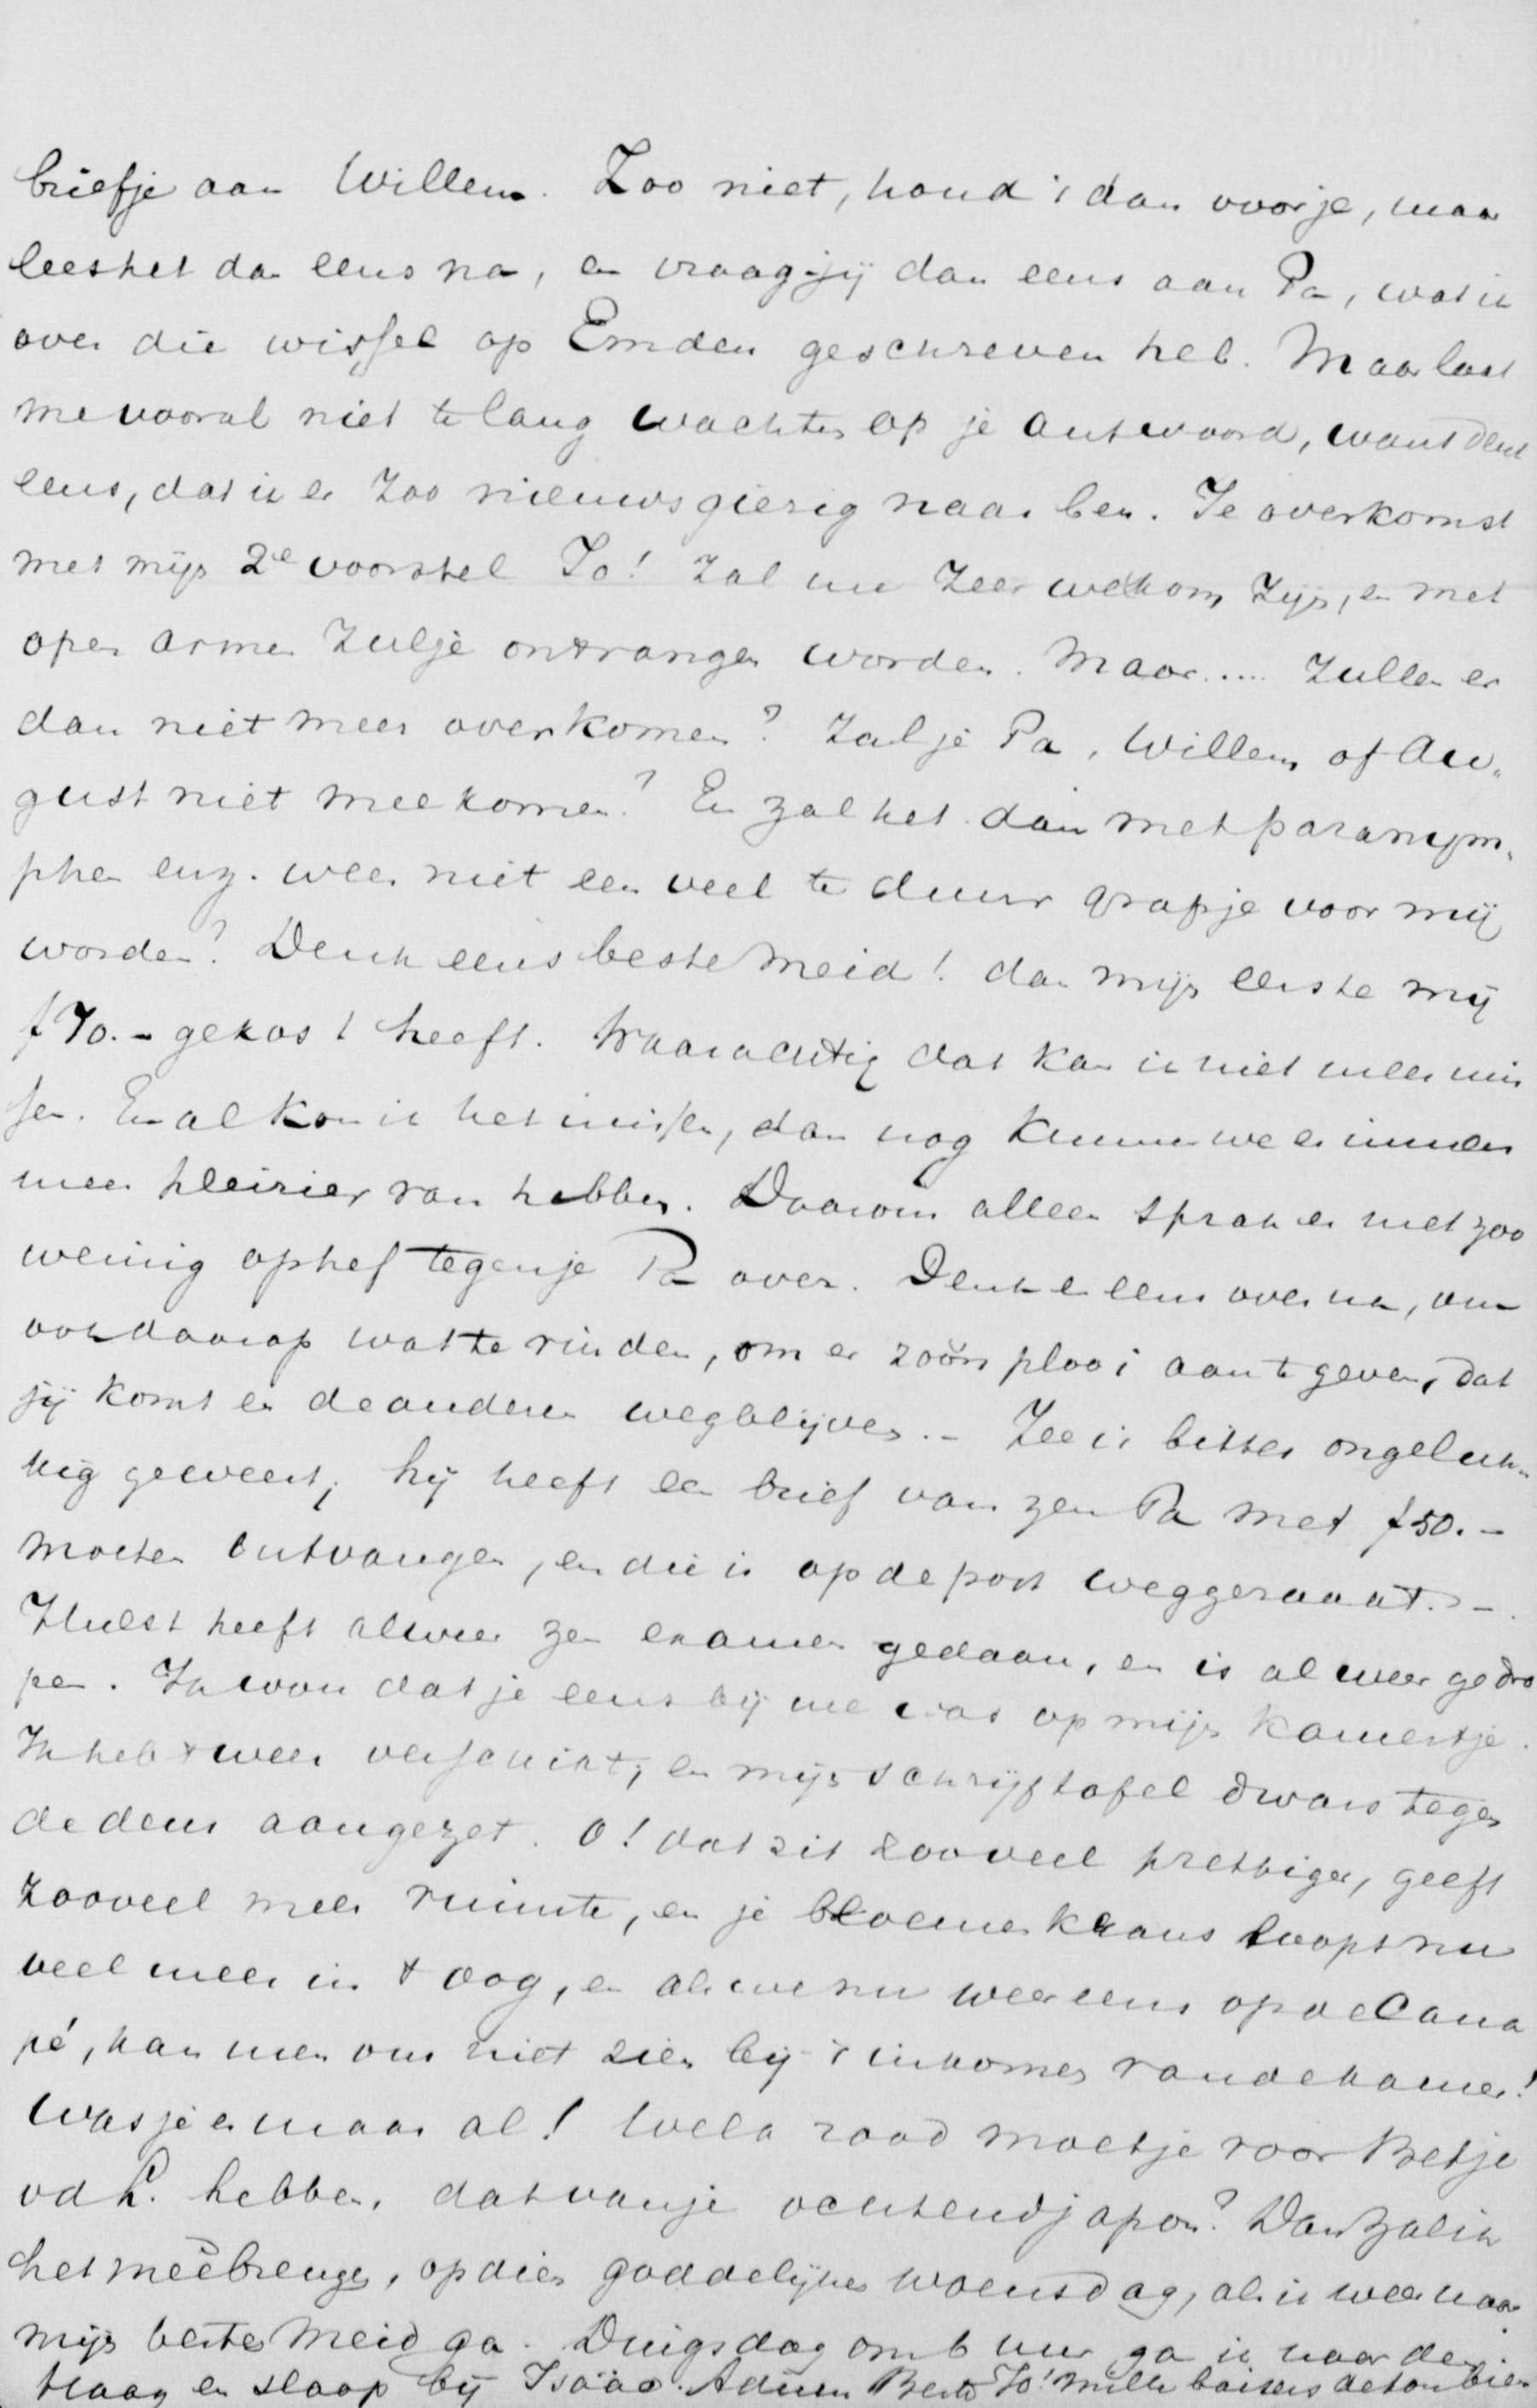 briefje aan Willem. Zoo niet, houd 't dan voor je, maar
lees het dan eens na, en vraag jij dan eens aan Pa, wat ik
over die wissel op Emden geschreven heb. Maar laat
me vooral niet te lang wachten op je antwoord, want denk
eens, dat ik er zoo nieuwsgierig naar ben. Je overkomst
met mijn 2e voorstel Jo! zal me zeer welkom zijn, en met
open armen zul je ontvangen worden. Maar..... zullen er
dan niet meer overkomen? Zal je Pa, Willem of Au„
gust niet meekomen? En zal het dan met paranym„
phen enz. weer niet een veel te duur grapje voor mij
worden? Denk eens beste meid! dan mijn eerste mij
f 70.- gekost heeft. Waarachtig dat kan ik niet meer mis
sen. En al kon ik het missen, dan nog kunnen we er immers
meer pleizier van hebben. Daarom alleen sprak er met zoo
weinig ophef tegen je Pa over. Denk er eens over na, om
ook daarop wat te vinden, om er zoo'n plooi aan te geven, dat
jij komt en de anderen wegblijven. - Zee is bitter ongeluk„
kig geweest; hij heeft een brief van zen Pa met f 50.-
moeten ontvangen, en die is op de post weggeraakt. -
Hulst heeft alweer zen examen gedaan, en is alweer gedro
pen. Ik wou dat je eens bij me was op mijn kamertje.
Ik heb 't weer verschikt, en mijn schrijftafel dwars tegen
de deur aangezet. O! dat zit zooveel prettiger, geeft
zooveel meer ruimte, en je bloemenkrans loopt nu
veel meer in 't oog, en als we nu weer eens op de Cana
pé, kan men ons niet zien bij 't inkomen van de kamer!
Was je er maar al! Welk zaad moet je voor Betje
vd L. hebben, dat van je ochtendjapon? Dan zal ik
het meêbrengen, op dien goddelijken Woensdag, als ik weer naar
mijn beste meid ga. Dingsdag om 6 uur ga ik naar den
Haag en slaap bij Isaäc. Adieu Beste Jo! mille baisers de ton bien